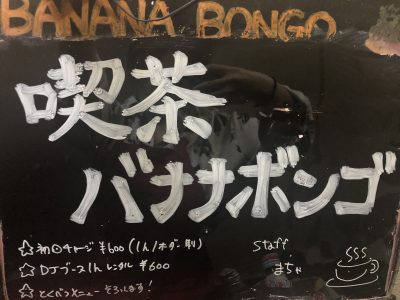 BANANA BONGO
喫茶
バナナボンゴ
☆初回チャージ ¥600 (1h/オーダー別)
☆DJブース1h レンタル ¥600
☆とくべつメニュー そろってます!
staff
まちゃ